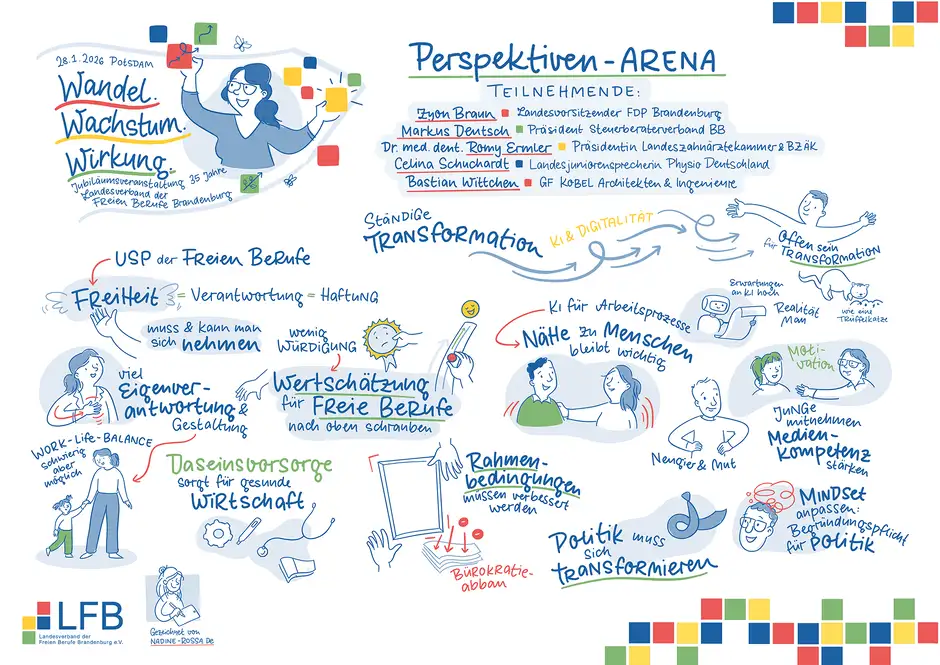 28.1.2026 Potsdam
Wandel.
Wachstum.
Wirkung.
Jubiläumsveranstaltung 35 Jahre
Landesverband der
Freien Berufe Brandenburg
Perspektiven-ARENA
TEILNEHMENDE:
Zyon Braun Landesvorsitzender FDP Brandenburg
Markus Deutsch Präsident Steuerberaterverband BB
Dr. med. dent. Romy Ermler Präsidentin Landeszahnärztekammer & BZÄK
Celina Schuchardt Landesjuniorensprecherin Physio Deutschland
Bastian Wittchen GF KOBEL Architekten & Ingenieure
STÄNDIGE
TRANSFORMATION
KI & DIGITALITÄT
Offen sein
für TRANSFORMATION
USP der Freien Berufe
FREIHEIT = Verantwortung = Haftung
muss & kann man
sich nehmen
viel
Eigenver-
antwortung &
Gestaltung
WORK-LIFE-BALANCE
schwierig
aber
möglich
wenig
WÜRDIGUNG
Wertschätzung
für Freie Berufe
nach oben schrauben
KI für Arbeitsprozesse
Nähe zu Menschen
bleibt wichtig
Erwartungen
an KI hoch
Realität
Mau
wie eine
Trüffelkatze
Neugier & Mut
Moti-
vation
Junge
mitnehmen
Medien-
kompetenz
stärken
Daseinsvorsorge
sorgt für gesunde
Wirtschaft
Rahmen-
bedingungen
müssen verbessert
werden
Bürokratie-
abbau
Politik muss
sich
transformieren
Mindset
anpassen:
Begründungspflicht
für Politik
LFB
Landesverband der
Freien Berufe Brandenburg e.V.
Gezeichnet von
NADINE-ROSSA.DE